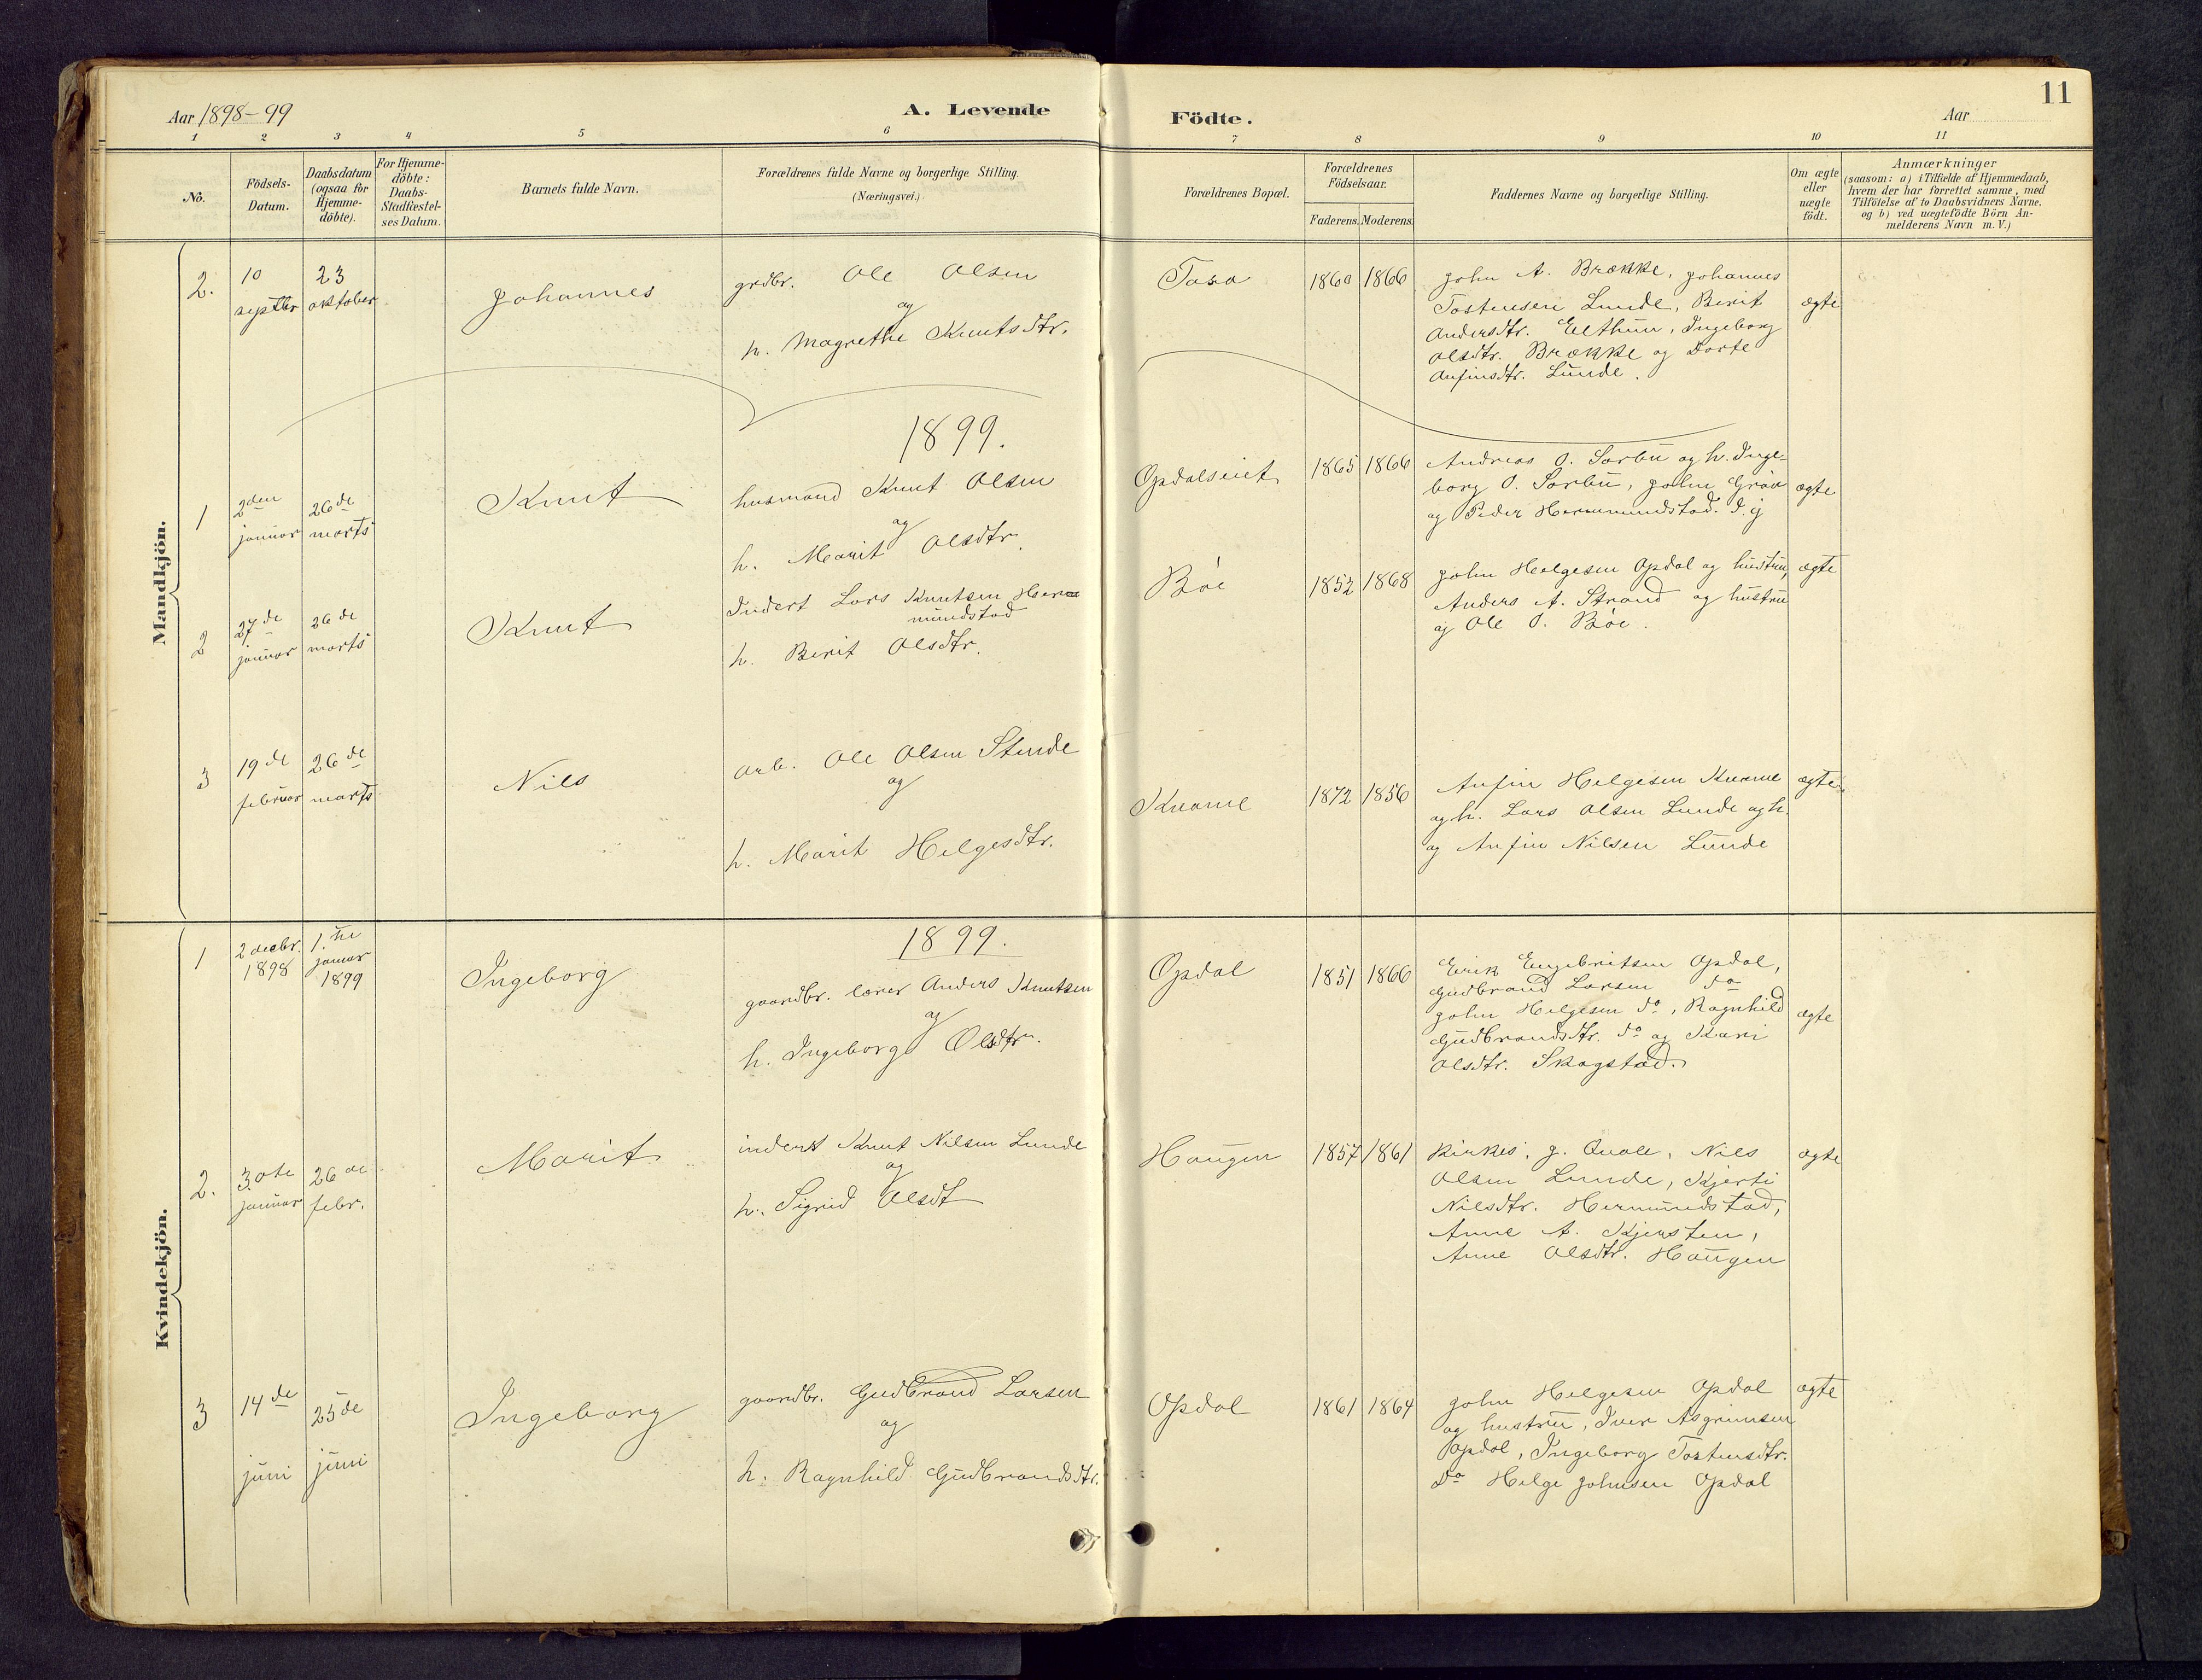 11
Aar 1898-99
A. Levende
Födte.
Aar
1 2 3 4 5 6 7 8 9 10 11
No.
Födsels-
Datum.
Daabsdatum
(ogsaa for
Hjemme-
döbte).
For Hjemme-
döbte:
Daabs-
Stadfæstel-
ses Datum.
Barnets fulde Navn.
Forældrenes fulde Navne og borgerlige Stilling.
(Næringsvei.)
Forældrenes Bopæl.
Forældrenes
Födselsaar.
Faderens. Moderens.
Faddernes Navne og borgerlige Stilling.
Om ægte
eller
uægte
födt.
Anmærkninger
(saasom: a) i Tilfælde af Hjemmedaab,
hvem der har forrettet samme, med
Tilföielse af to Daabsvidners Navne,
og b) ved uægtefödte Börn An-
melderens Navn m. V.)
Mandkjön.
2.
10
septbr
23
oktober
Johannes
grdbr. Ole Olsen
og
h. Magrethe Knutsdtr.
1860 1866
John A. Brække, Johannes
Tostensen Lunde, Berit
Andersdtr. Ingeborg
Olsdtr. Brække og Dorte
Anfinsdtr. Lunde.
ægte
1899.
1
2den
januar
26de
marts
Knut
husmand Knut Olsen
og
h. Marit Olsdtr.
Opdalseiet
1865 1866
Andreas O. Sørbu og h. Inge-
borg O. Sørbu, John Grøv
og Peder Hermundstad.
ægte
2
27de
januar
26de
marts
Knut
Inderst Lars Knutsen Her-
mundstad
h. Berit Olsdtr.
Bøe
1852 1868
John Helgesen Opdal og hustru,
Anders A. Strand og hustru
og Ole O. Bøe.
ægte
3
19de
februar
26de
marts
Nils
arb. Ole Olsen Stende
og
h. Marit Helgesdtr.
Kvame
1872 1856
Anfin Helgesen Kvame
og h. Lars Olsen Lunde og h.
og Anfin Nilsen Lunde
ægte
Kvindekjön.
1899.
1
2 decbr.
1898
1.ste
januar
1899
Ingeborg
gaardbr. lærer Anders Knutsen
og
h. Ingeborg Olsdtr.
Opdal
1851 1866
Eirik Engebritsen Opdal,
Gudbrand Larsen do
John Helgesen do, Ragnhild
Gudbrandsdtr. do og Kari
Olsdtr. Skogstad.
ægte
2.
3.dte
januar
26de
febr.
Marit
inderst Knut Nilsen Lunde
og
h. Sigrid Olsdt
Haugen
1857 1861
Kirkes. J. Quale, Nils
Olsen Lunde, Kjersti
Nilsdtr. Hermundstad,
Anne A. Kjersten,
Anne Olsdtr. Haugen
ægte
3
14de
juni
25de
juni
Ingeborg
gaardbr. Gudbrand Larsen
og
h. Ragnhild Gudbrandsdtr.
Opdal
1861 1864
John Helgesen Opdal
og hustru, Iver Asgrimsen
Opdal, Ingeborg Tostensdtr.
do Helge Johnsen Opdal
ægte